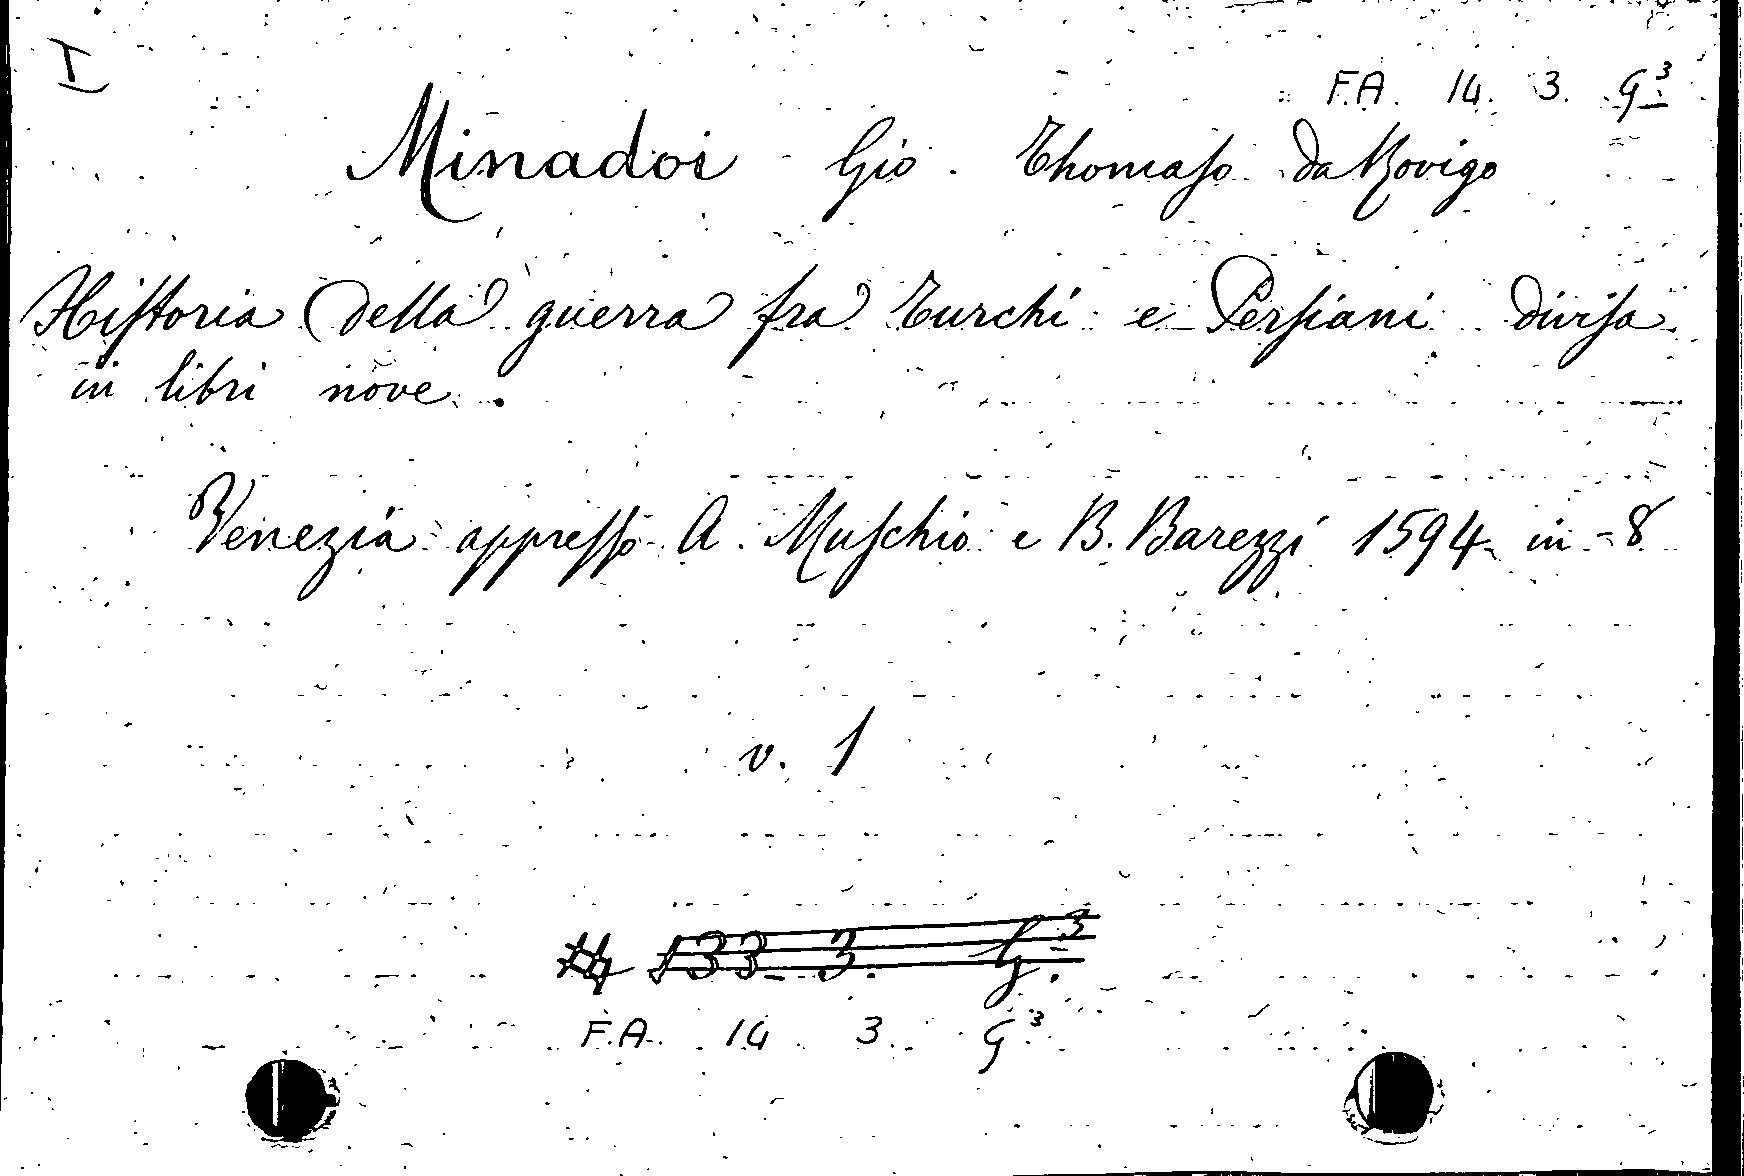 I
F.A. 14. 3. G.3
Minadoi Gio. Thomaso da Rovigo
Historia della guerra fra Turchi e Persiani divisa
in libri nove.
Venezia appresso A. Muschio e B. Barezzi 1594 in-8
v. 1
133 3. G.3
F.A. 14 3. G3